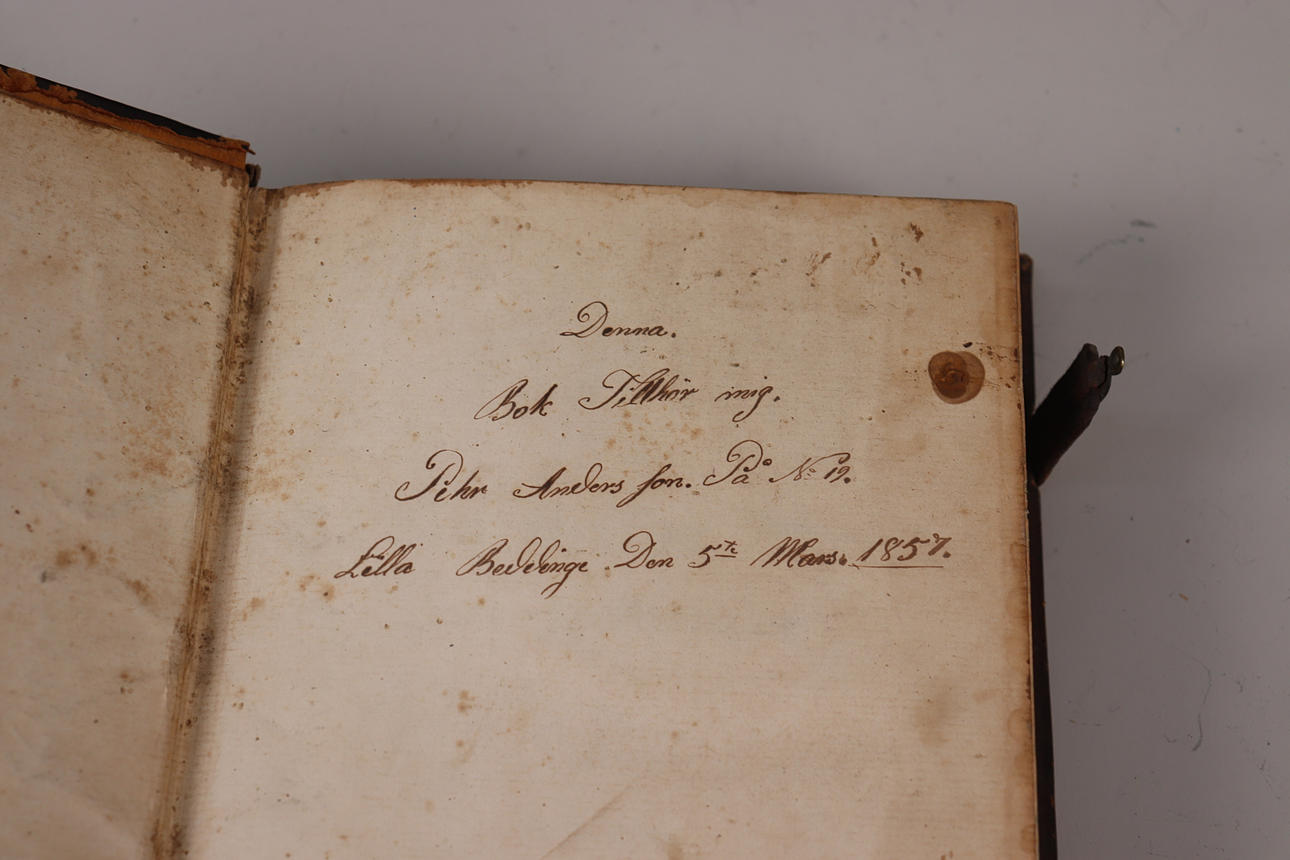 Denna.
Bok Tillhör mig.
Pehr Anders son. På No 19.
Lilla Beddinge. Den 5te Mars. 1857.